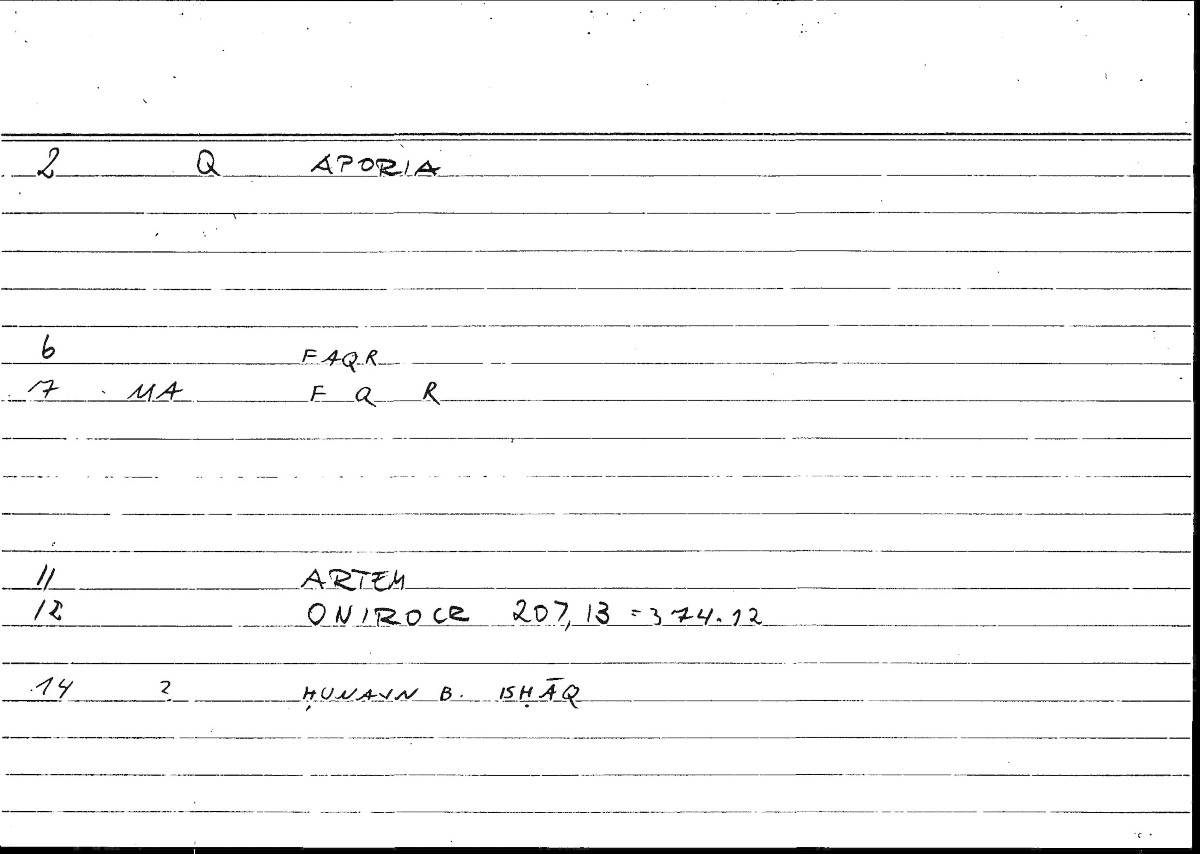 2 Q APORIA
6 FAQR
7 MA F Q R
11 ARTEM
12 ONIROCR 207,13 = 374.12
14 2 ḤUNAYN B. ISḤĀQ